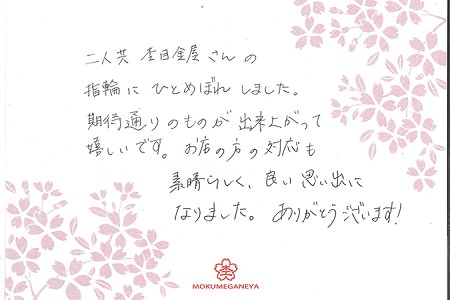 二人共 杢目金屋さんの
指輪に ひとめぼれ しました。
期待通りのものが 出来上がって
嬉しいです。お店の方の対応も
素晴らしく、良い思い出に
なりました。ありがとうございます!
杢
MOKUMEGANEYA